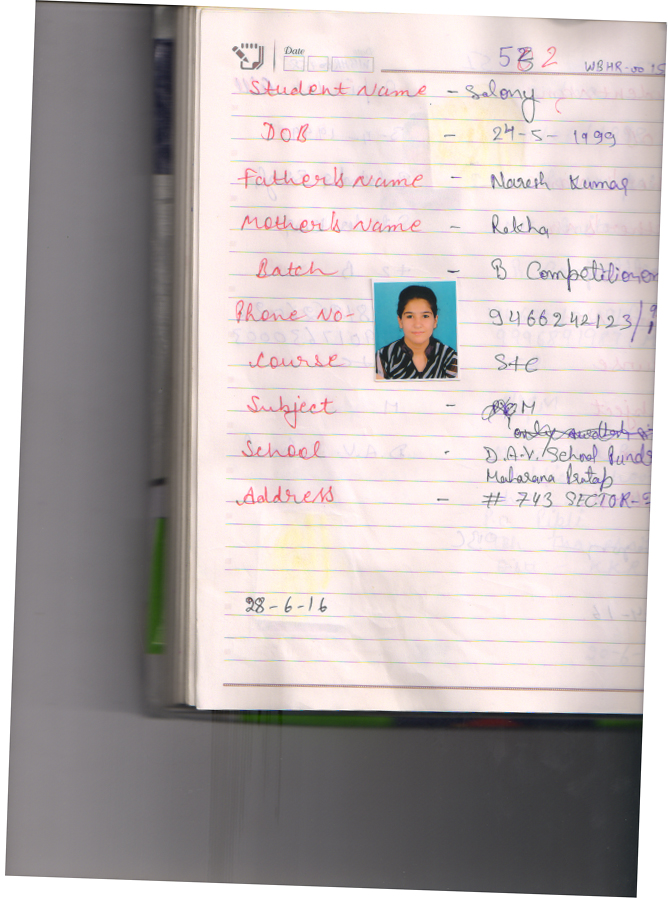 Date
52 2 WBHR-00
Student Name - Salony
DOB - 24-5-1999
Father's Name - Naresh Kumar
Mother's Name - Rekha
Batch - B Competition
Phone No- 9466242123/
Course S+C
Subject - M
School - D.A.V. School
Maharana Pratap
Address - # 743 SECTOR-
28-6-16